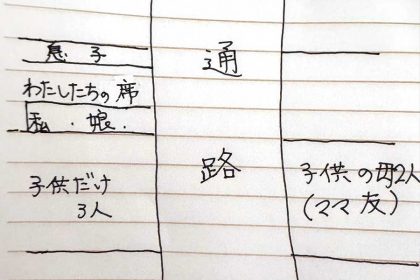 息子
わたしたちの席
私・娘・
子供だけ
3人
通
路
子供の母2人
(ママ友)